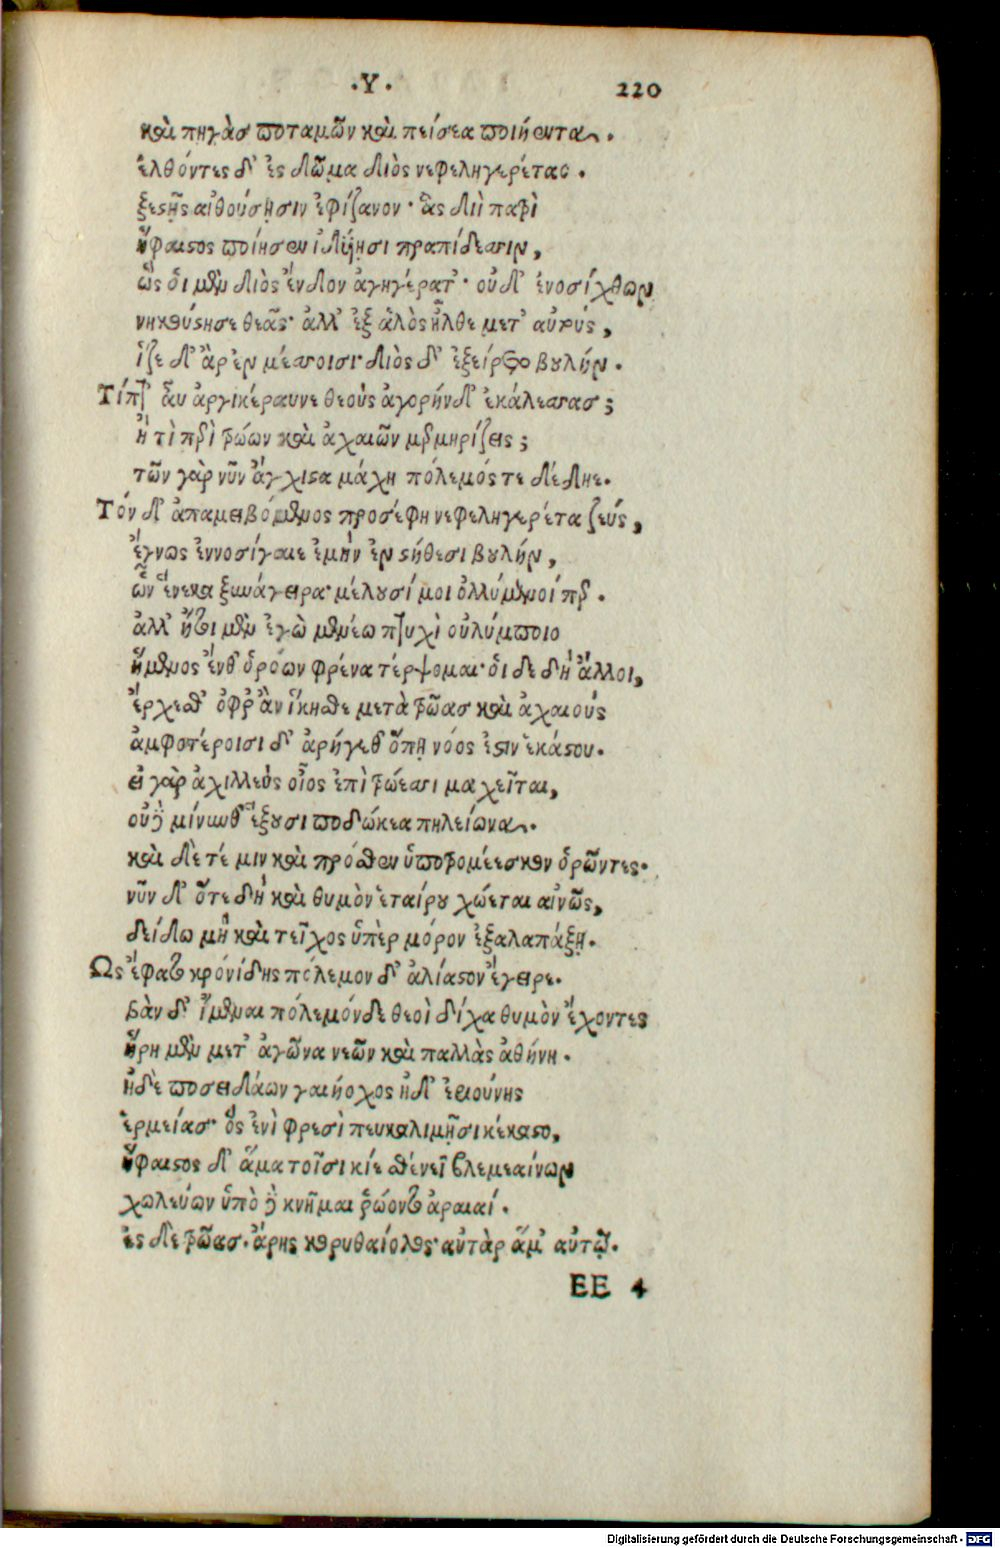 ·Υ· 220
καὶ πηγὰς ποταμῶν καὶ πείσεα ποιήεντα.
ἐλθόντες δ' ἐς δῶμα διὸς νεφεληγερέταο.
ξεστῇς αἰθούσῃσιν ἐφίζανον· ἃς διὶ πατρὶ
ἥφαιστος ποίησεν ἰδυίῃσι πραπίδεσσιν,
ὣς ὁι μὲν διὸς ἔνδον ἀγηγέρατ'· οὐδ' ἐνοσίχθων
νηκούστησε θεᾶς· ἀλλ' ἐξ ἁλὸς ἦλθε μετ' αὐτούς,
ἷζε δ' ἂρ ἐν μέσσοισι· διὸς δ' ἐξείρετο βουλήν.
Τίπτ' ἂυ ἀργικέραυνε θεοὺς ἀγορήνδ' ἐκάλεσσας;
ἦ τὶ περὶ τρώων καὶ ἀχαιῶν μερμηρίζεις;
τῶν γὰρ νῦν ἄγχιστα μάχη πόλεμός τε δέδηε.
Τόν δ' ἀπαμειβόμενος προσέφη νεφεληγερέτα ζεύς,
ἔγνως ἐννοσίγαιε ἐμὴν ἐν στήθεσι βουλήν,
ὧν ἕνεκα ξυνάγειρα· μέλουσί μοι ὀλλύμενοί περ.
ἀλλ' ἤτοι μὲν ἐγὼ μενέω πτυχὶ οὐλύμποιο
ἥμενος ἔνθ' ὁρόων φρένα τέρψομαι· ὁι δὲ δὴ ἄλλοι,
ἔρχεσθ' ὀφρ' ἂν ἵκησθε μετὰ τρῶας καὶ ἀχαιούς
ἀμφοτέροισι δ' ἀρήγεθ' ὅπη νόος ἐστὶν ἑκάστου.
εἰ γὰρ ἀχιλλεὺς οἶος ἐπὶ τρώεσσι μαχεῖται,
οὐδὲ μίνυνθ' ἕξουσι ποδώκεα πηλείωνα.
καὶ δὲ τέ μιν καὶ πρόσθεν ὑποτρομέεσκον ὁρῶντες·
νῦν δ' ὅτε δὴ καὶ θυμὸν ἑταίρου χώεται αἰνῶς,
δείδω μὴ καὶ τεῖχος ὑπὲρ μόρον ἐξαλαπάξῃ.
Ως ἔφατο κρόνίδης πόλεμον δ' ἀλίαστον ἔγειρε.
βὰν δ' ἴμεναι πόλεμόνδε θεοὶ δίχα θυμὸν ἔχοντες
ἥρη μὲν μετ' ἀγῶνα νεῶν καὶ παλλὰς ἀθήνη.
ἠδὲ ποσειδάων γαιήοχος ἠδ' ἐριούνης
ἑρμείας· ὃς ἐνὶ φρεσὶ πευκαλιμῇσι κέκαστο,
ἥφαιστος δ' ἅμα τοῖσι κίε σθένεϊ βλεμεαίνων
χωλεύων ὑπὸ δὲ κνῆμαι ῥώοντο ἀραιαί.
ἐς δὲ τρῶας· ἄρης κορυθαίολος· αὐτὰρ ἅμ' αὐτῷ.
EE 4
Digitalisierung gefördert durch die Deutsche Forschungsgemeinschaft - DFG